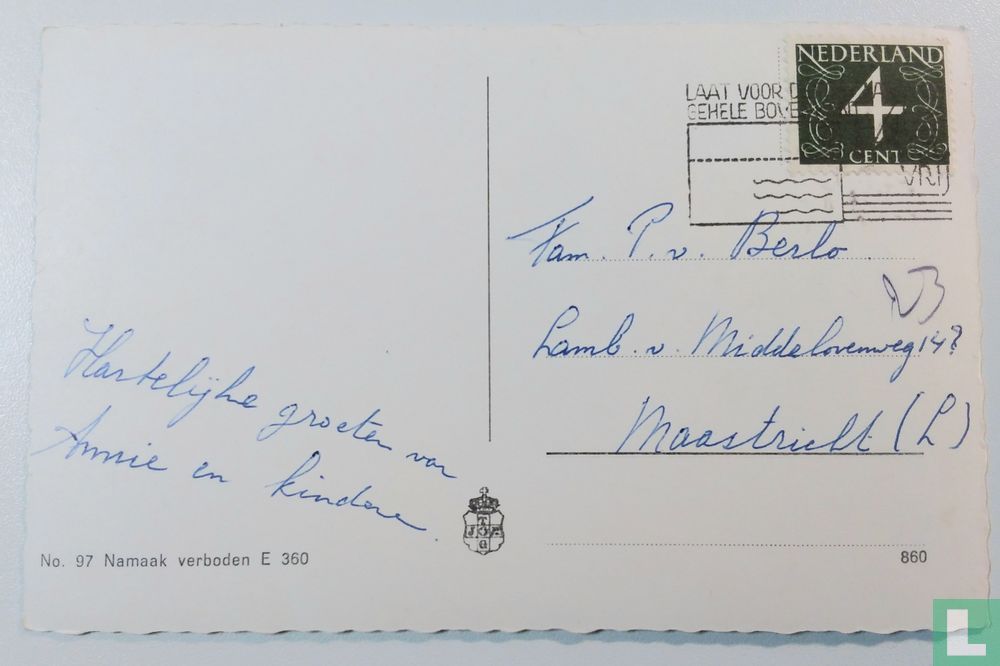 NEDERLAND
4
CENT
LAAT VOOR
GEHELE
VRIJ
Fam. P. v. Berlo
Lamb. v. Middelovenweg
Maastricht (L)
Hartelijke groeten van
Annie en kindere
No. 97 Namaak verboden E 360
860
L